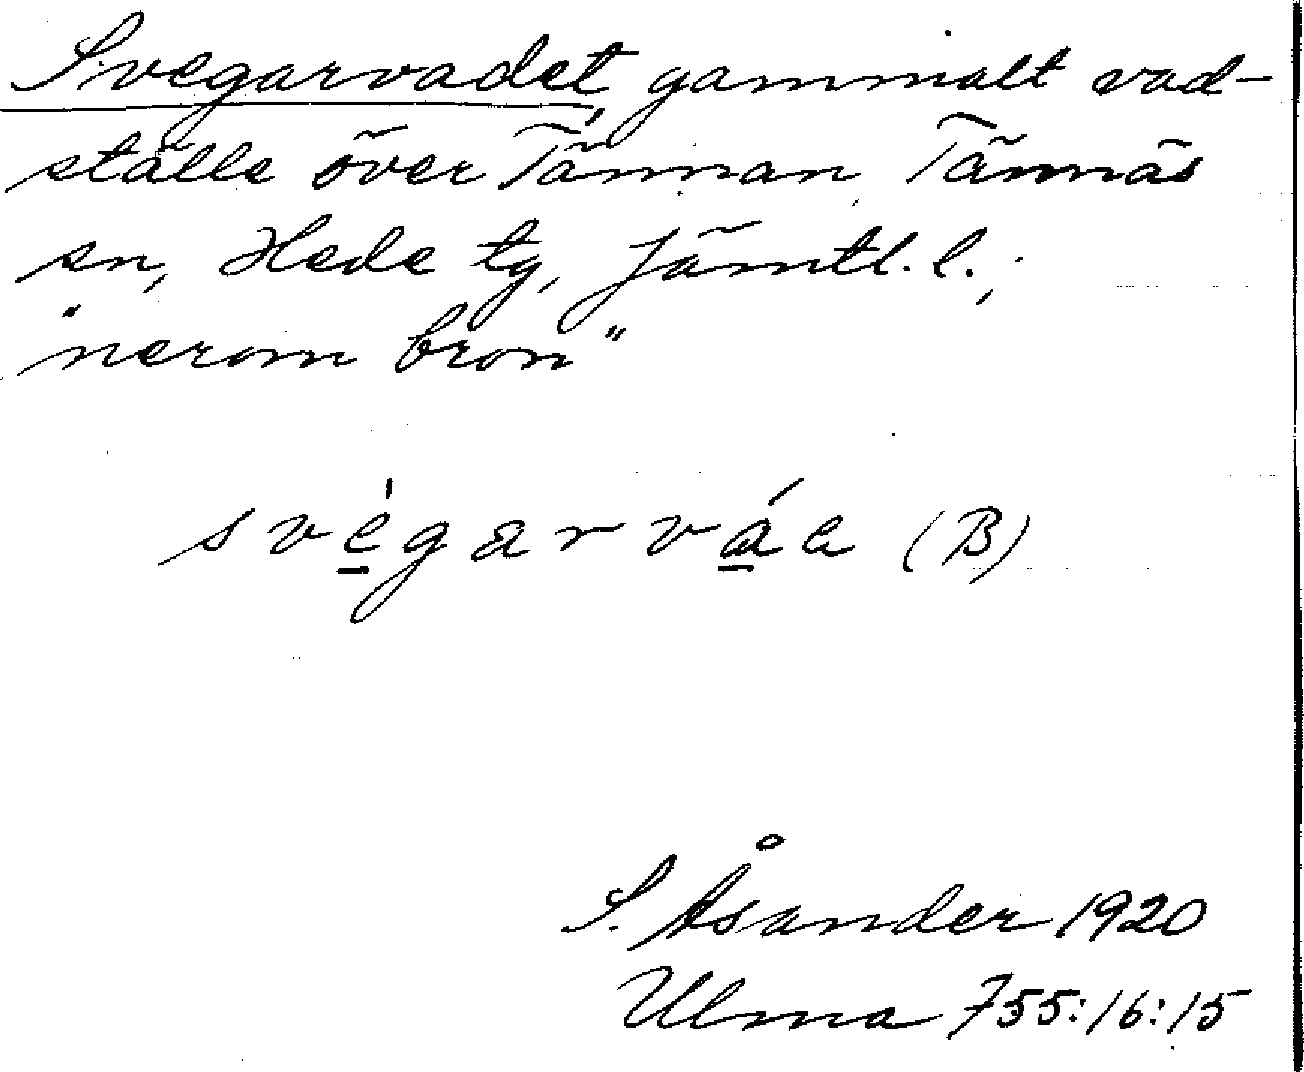 Svegarvadet, gammalt vad-
ställe över Tännan, Tännäs
sn, Hede tg, Jämtl. l.;
"nerom bron"
svégarváe (B)
S. Åsander 1920
Ulma 755:16:15